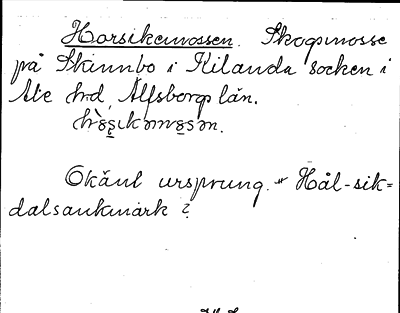 Horsikemossen. Skogsmosse
på Skinnbo i Kilanda socken i
Ale hd, Älfsborgs län.
Okänt ursprung. Hål-sik=
dalsankmark?